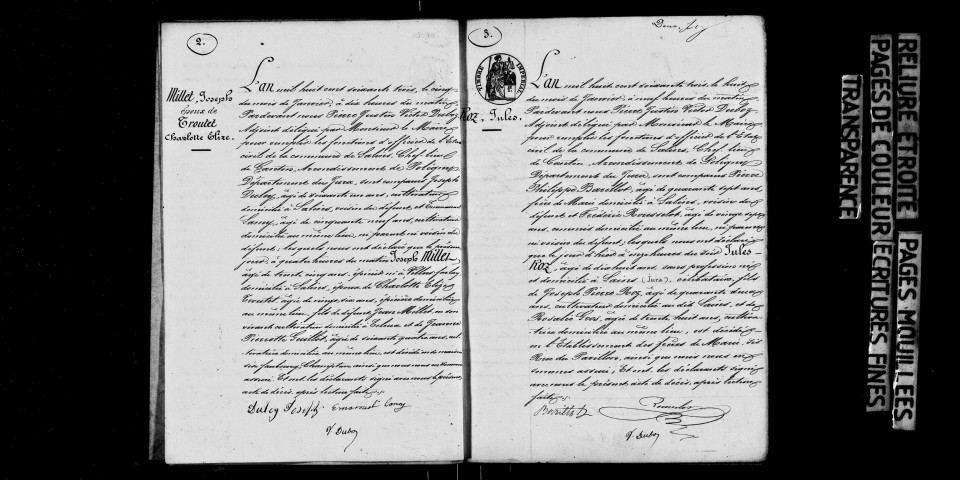 2.
Millet, Joseph
époux de
Troutet
Charlotte Elize.
L'an mil huit cent soixante trois, le cinq
du mois de Janvier, à dix heures du matin
Pardevant nous Pierre
Adjoint délégué par Monsieur le Maire
pour remplir les fonctions d'officier de l'Etat
civil de la commune de Salins, Chef lieu
de Canton, Arrondissement de Poligny
Département du Jura, sont comparus Joseph
Duboy, âgé de soixante un ans, cultivateur
domicilié à Salins, voisin du défunt, et Emmanuel
âgé de cinquante neuf ans, cultivateur
domicilié au même lieu, ni parent ni voisin du
défunt; lesquels nous ont déclaré que le présent
jour, à quatre heures du matin Joseph Millet,
âgé de trente cinq ans, épicier né à
domicilié à Salins, époux de Charlotte Elize
Troutet, âgée de vingt six ans, épicière domiciliée
au même lieu, fils de défunt Jean Millet, en son
vivant cultivateur domicilié à et de Jeanne
Pierrette Guillot, âgée de soixante quatre ans,
domiciliée au même lieu, est décédé en sa maison
faubourg Champtave ainsi que nous nous en sommes
assuré. Et ont les déclarants signé avec nous le présent
acte de décès, après lecture faite.
Duboy Joseph
V. Duboy
3.
TIMBRE IMPERIAL
Roz, Jules.
L'an mil huit cent soixante trois, le huit
du mois de Janvier, à neuf heures du matin
Pardevant nous Pierre
Adjoint délégué par Monsieur le Maire
pour remplir les fonctions d'officier de l'Etat
civil de la commune de Salins, Chef lieu
de Canton, Arrondissement de Poligny
Département du Jura, sont comparus Pierre
Philippe Barillot, âgé de quarante sept ans,
domicilié à Salins, voisin du
défunt et Frédéric Rousselot, âgé de vingt sept
ans, commis domicilié au même lieu, ni parent
ni voisin du défunt; lesquels nous ont déclaré
que le jour d'hier à heures du soir Jules
Roz, âgé de dix huit ans, sans profession né
et domicilié à (Jura), célibataire, fils
de Joseph Pierre Roz, âgé de quarante deux
ans, cultivateur domicilié au dit et de
Rosalie Gros, âgée de trente huit ans, cultiva-
trice domiciliée au même lieu, est décédé
en l'Etablissement des frères de Marie, sis
Rue du Pavillon, ainsi que nous nous en
sommes assuré, Et ont les déclarants signé
avec nous le présent acte de décès après lecture
faite.
V. Duboy
RELIURE ETROITE
PAGES DE COULEUR
TRANSPARENCE
PAGES MOUILLEES
ECRITURES FINES